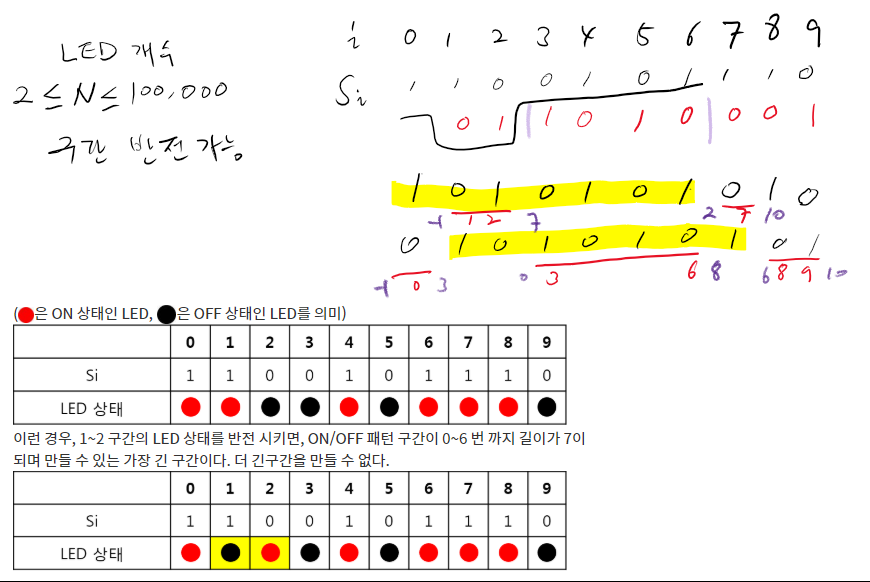 LED 개수
2 ≤ N ≤ 100,000
구간 반전 가능
i 0 1 2 3 4 5 6 7 8 9
Si 1 1 0 0 1 0 1 1 1 0
0 1 1 0 1 0 0 0 1
1 0 1 0 1 0 1 0 1 0
-1 1 2 7 2 7 10
0 1 0 1 0 1 0 1 0 1
-1 0 3 0 3 6 8 6 8 9 10
(은 ON 상태인 LED, 은 OFF 상태인 LED를 의미)
0 1 2 3 4 5 6 7 8 9
Si 1 1 0 0 1 0 1 1 1 0
LED 상태
이런 경우, 1~2 구간의 LED 상태를 반전 시키면, ON/OFF 패턴 구간이 0~6 번 까지 길이가 7이
되며 만들 수 있는 가장 긴 구간이다. 더 긴구간을 만들 수 없다.
0 1 2 3 4 5 6 7 8 9
Si 1 1 0 0 1 0 1 1 1 0
LED 상태